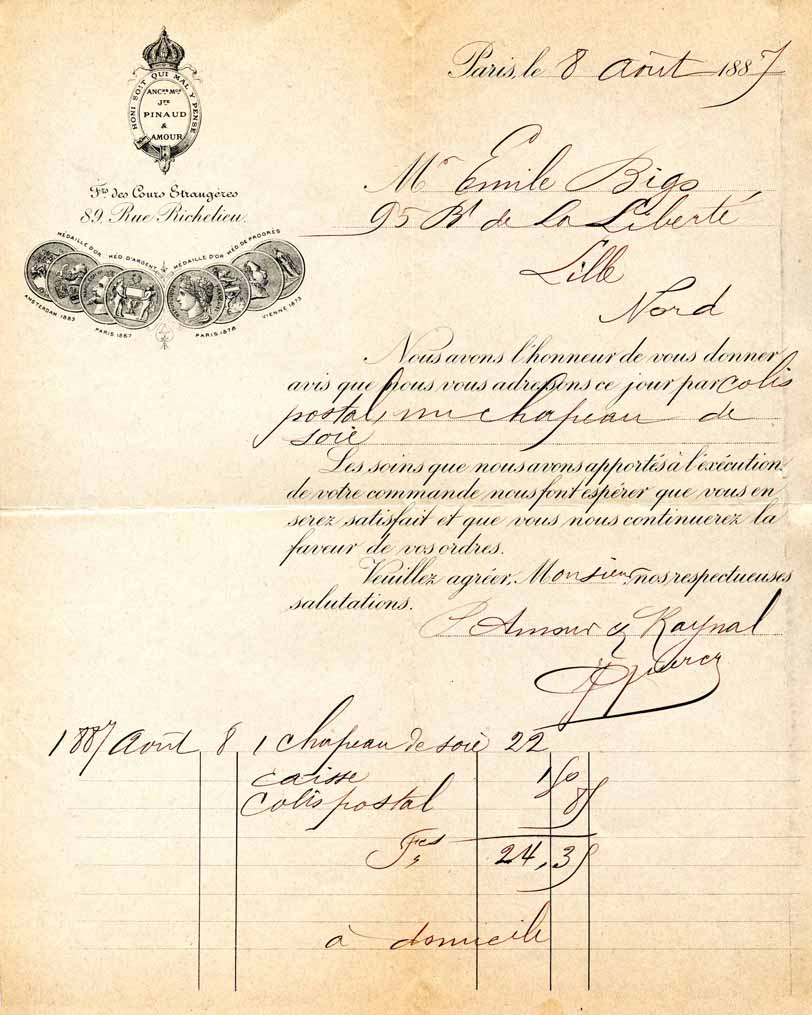 HONI SOIT QUI MAL Y PENSE
ANCNE MON
JTE
PINAUD
&
AMOUR
Frs des Cours Etrangères
89, Rue Richelieu.
MÉDAILLE D'OR MÉD. D'ARGENT MÉDAILLE D'OR MÉD. DE PROGRÈS
AMSTERDAM 1883 PARIS 1867 PARIS 1878 VIENNE 1873
Paris, le 8 Août 1887
Mr Emile Bigo
95 Bd de la Liberté
Lille
Nord
Nous avons l'honneur de vous donner
avis que nous vous adressons ce jour par colis
postal, un chapeau de
soie
Les soins que nous avons apportés à l'exécution
de votre commande nous font espérer que vous en
serez satisfait et que vous nous continuerez la
faveur de vos ordres.
Veuillez agréer, Monsieur, nos respectueuses
salutations.
Amour & Raynal
1887 Août 8 1 chapeau de soie 22
caisse 1 50
Colis postal 85
Fcs 24,35
à domicile